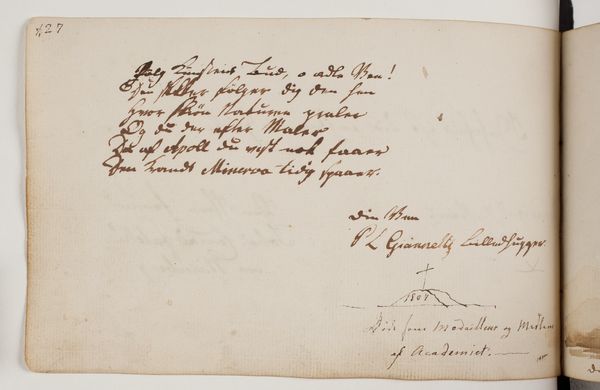 127
Følg Kunstens Bud, o ædle Ven!
Du sikker følger dig den hen
Hvor skiøn Naturen praler
Og du der efter Maler
Da af Apoll du vist nok faaer
Den Krands Minerva tidig spaaer.
Din Ven
P L Gianelly Billedhugger
1807
Døde som Medailleur og Medlem
af Academiet.